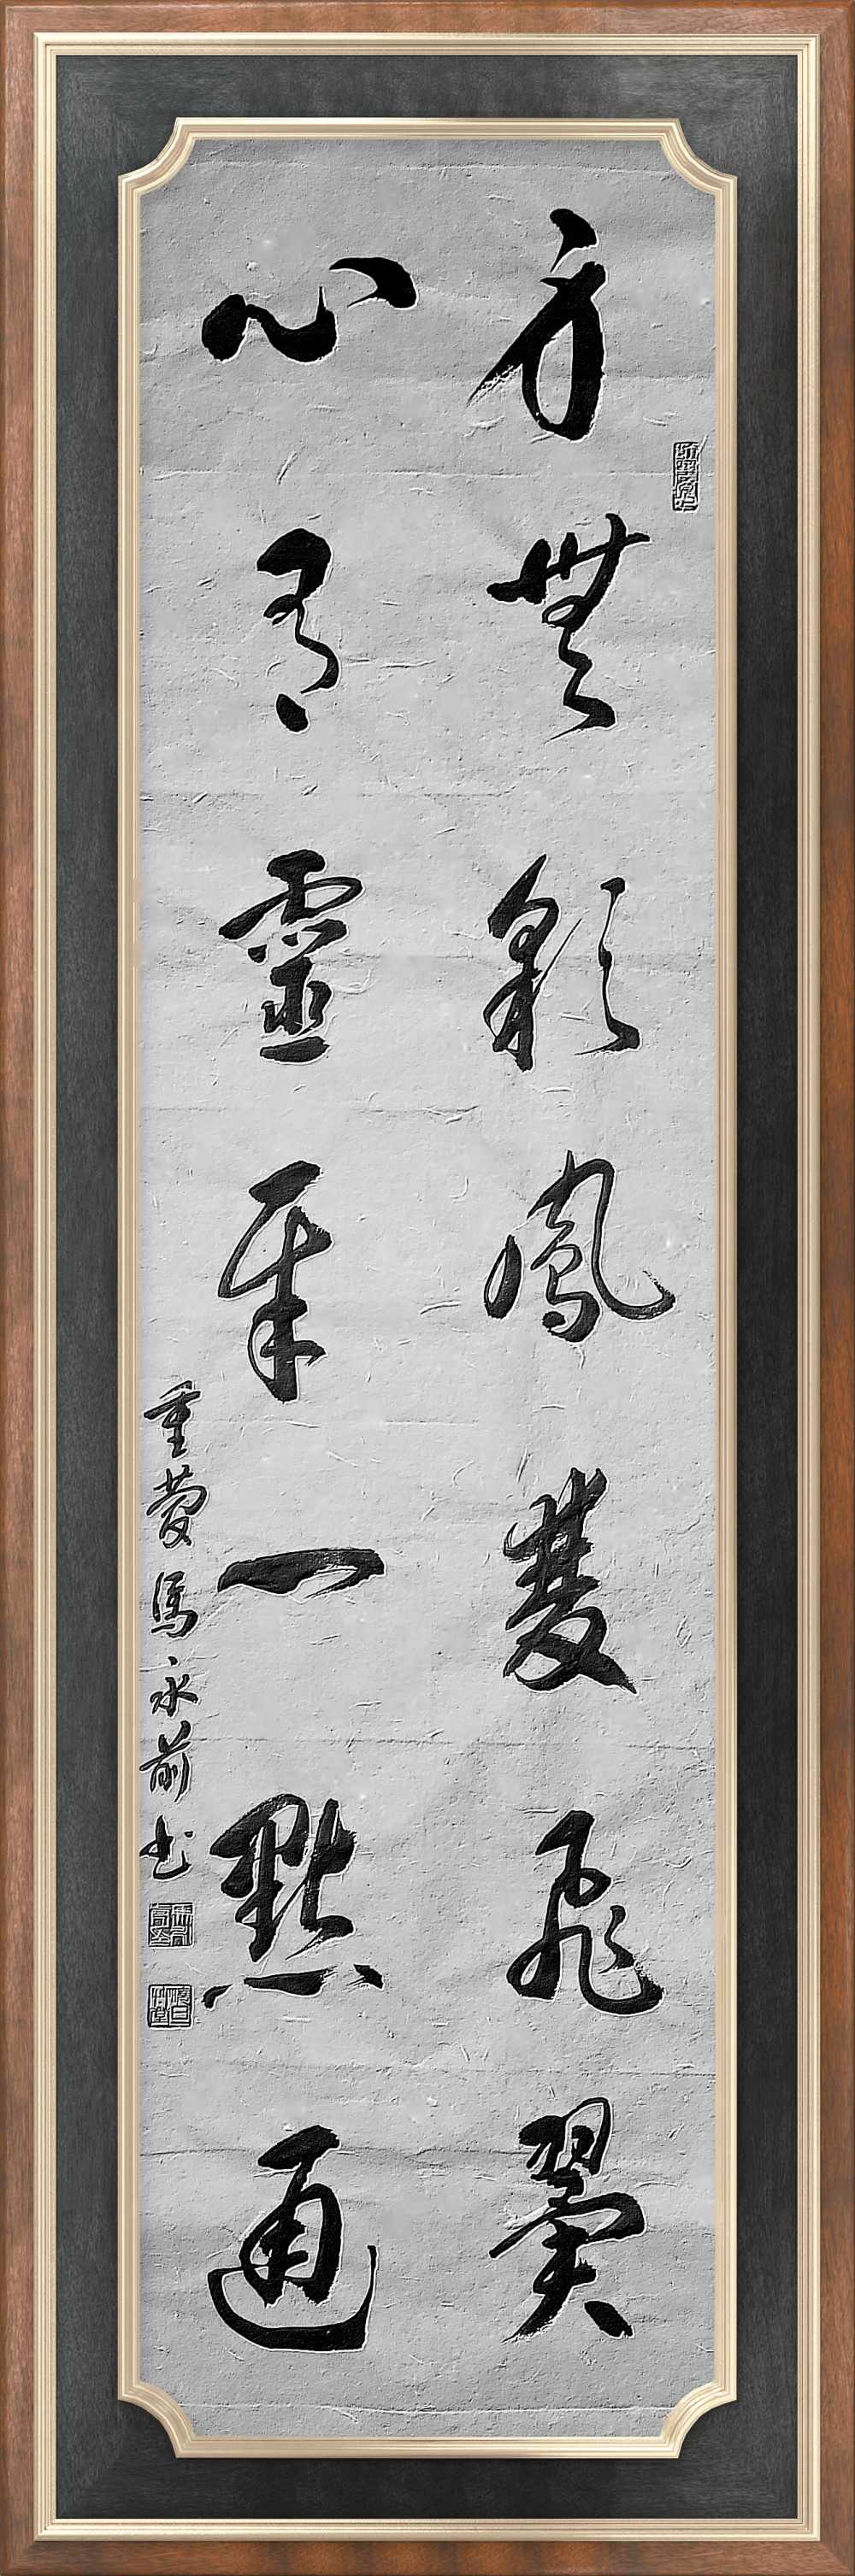 身無彩鳳雙飛翼
心有靈犀一點通
重慶馮永前書